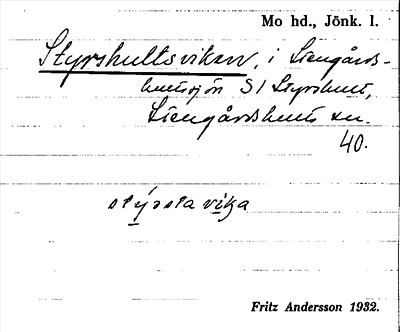 Mo hd., Jönk. l.
Styrshultsviken, i Stengårds-
hultsjön S/ Styrshult,
Stengårdshults sn.
40.
stýssta vika
Fritz Andersson 1932.